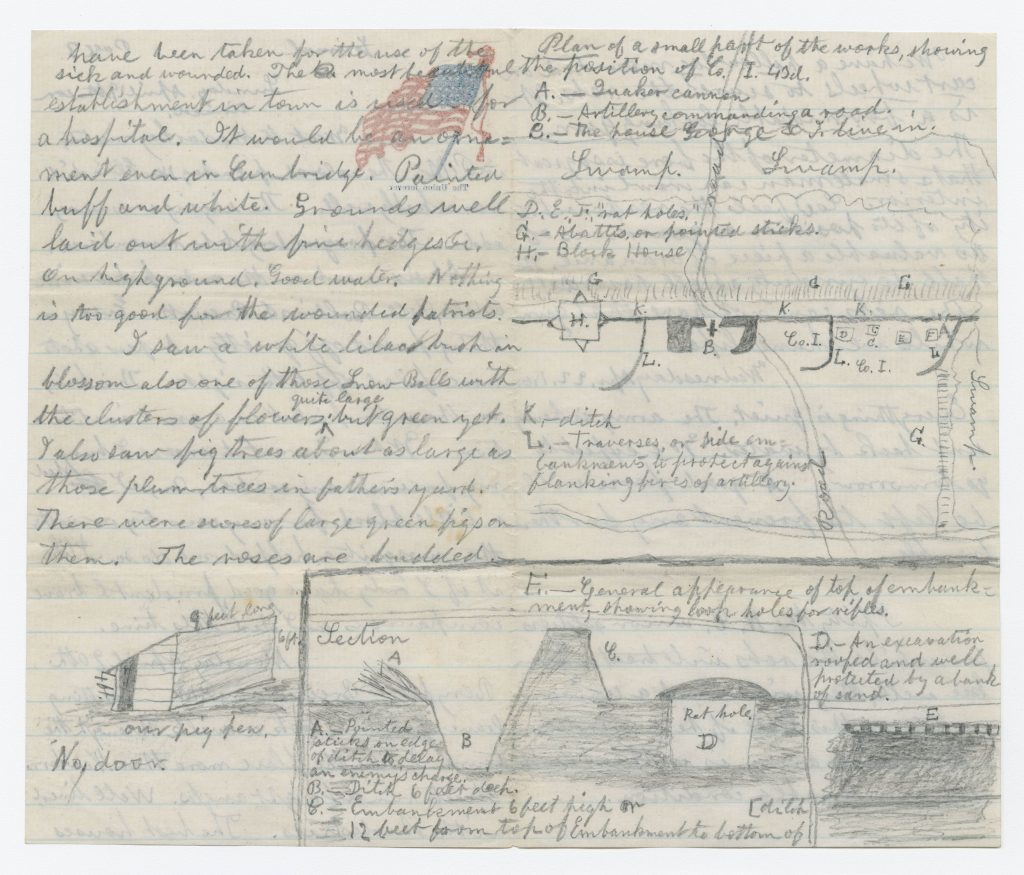 have been taken for the use of the
sick and wounded. The most beautiful
establishment in town is used for
a hospital. It would be an orna=
ment even in Cambridge. Painted
buff and white. Grounds well
laid out with fine hedges &c.
On high ground. Good water. Nothing
is too good for the wounded patriots.
I saw a white lilac bush in
blossom also one of those Snow Balls with
the clusters of flowers quite large but green yet.
I also saw fig trees about as large as
those plum trees in father's yard.
There were scores of large green figs on
them. The roses are budded.
The Union forever
9 feet long
6 ft.
4 ft.
our pig pen,
No door.
Plan of a small part of the works, showing
the position of Co. I. 43d.
A. — Quaker cannon
B. — Artillery commanding a road.
C. — The house George & I live in.
Swamp. Swamp.
D. E. F. "rat holes,"
G. — Abattis, or pointed sticks.
H. — Block House
Road
G G G
K. K. K.
H. B. Co. I. D C E F A
L. L. L
Co. I.
G.
Swamp
K. — ditch
L. — Traverses, or side em-
bankments to protect against
flanking fires of artillery.
Road
E. — General appearance of top of embank-
ment, showing loop holes for rifles.
Section
A
B
C.
Rat hole,
D
D. — An excavation
roofed and well
protected by a bank
of sand.
E
A. — Pointed
sticks on edge
of ditch to delay
an enemy's charge.
B. — Ditch 6 feet deep.
C. Embankment 6 feet high or
12 feet from top of Embankment to bottom of
[ditch